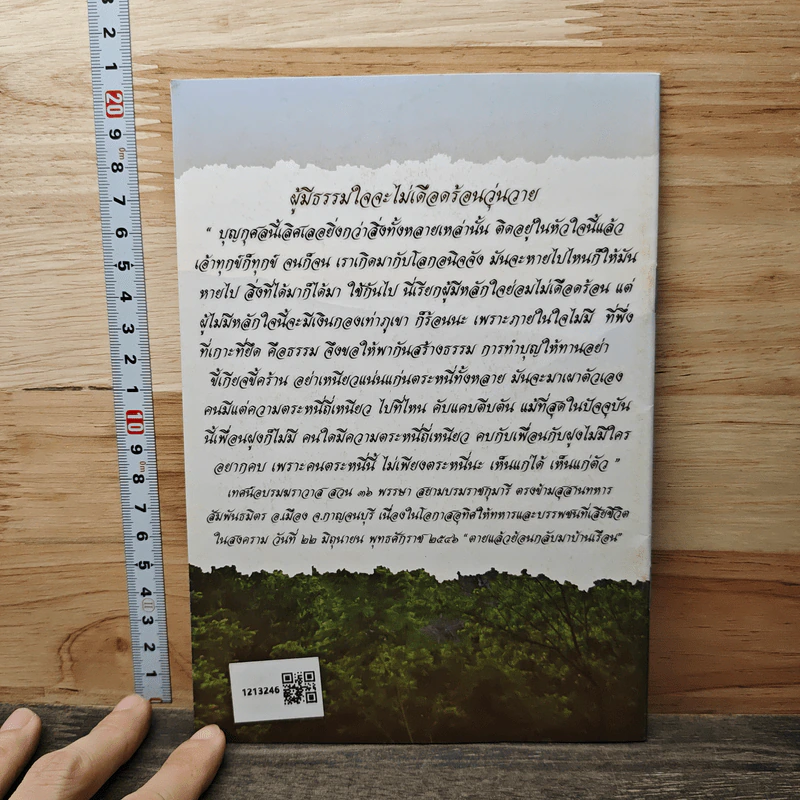 ผู้มีธรรมใจจะไม่เดือดร้อนวุ่นวาย
“ บุญกุศลนี้เลิศเลอยิ่งกว่าสิ่งทั้งหลายเหล่านั้น ติดอยู่ในหัวใจนี้แล้ว
เจ้าทุกข์ก็ทุกข์ จนก็จน เราเกิดมากับโลกอนิจจัง มันจะหายไปไหนก็ให้มัน
หายไป สิ่งที่ได้มาก็ได้มา ใช้กันไป นี่เรียกผู้มีหลักใจย่อมไม่เดือดร้อน แต่
ผู้ไม่มีหลักใจนี้จะมีเงินกองเท่าภูเขา ก็ร้อนนะ เพราะภายในใจไม่มี ที่พึ่ง
ที่เกาะที่ยึด คือธรรม จึงขอให้พากันสร้างธรรม การทำบุญให้ทานอย่า
ขี้เกียจขี้คร้าน อย่าเหนียวแน่นแก่นตระหนี่ทั้งหลาย มันจะมาเผาตัวเอง
คนมีแต่ความตระหนี่ถี่เหนียว ไปที่ไหน คับแคบตีบตัน แม้ที่สุดในปัจจุบัน
นี้เพื่อนฝูงก็ไม่มี คนใดมีความตระหนี่ถี่เหนียว คบกับเพื่อนกับฝูงไม่มีใคร
อยากคบ เพราะคนตระหนี่นี้ ไม่เพียงตระหนี่นะ เห็นแก่ได้ เห็นแก่ตัว ”
เทศน์อบรมฆราวาส สวน ๓๖ พรรษา สยามบรมราชกุมารี ตรงข้ามสุสานทหาร
สัมพันธมิตร อ.เมือง จ.กาญจนบุรี เนื่องในโอกาสอุทิศให้ทหารและบรรพชนที่เสียชีวิต
ในสงคราม วันที่ ๒๒ มิถุนายน พุทธศักราช ๒๕๔๖ “ตายแล้วย้อนกลับมาบ้านเรือน”
1213246
3
2
1
20
9
8
7
6
5
4
3
2
1
10
9
8
7
6
5
4
3
2
1